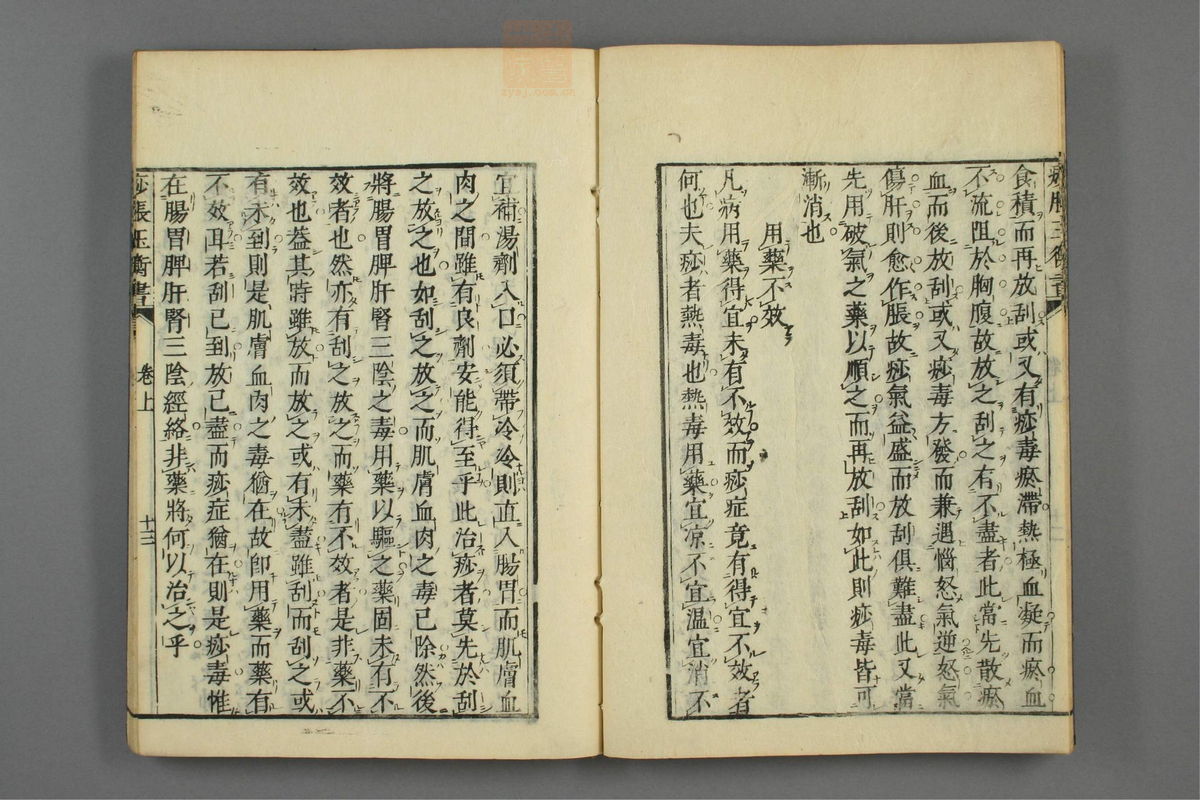 食積而再放刮或又有痧毒瘀滯熱極血凝而瘀血
不流阻於胸腹故放之刮之有不盡者此當先散瘀
血而後放刮或又痧毒方發而兼遇惱怒氣逆怒氣
傷肝則愈作脹故痧氣益盛而放刮俱難盡此又當
先用破氣之藥以順之而再放刮如此則痧毒皆可
漸消也
用藥不效
凡病用藥得宜未有不效而痧症竟有得宜不效者
何也夫痧者熱毒也熱毒用藥宜凉不宜溫宜消不
宜補湯劑入口必須帶冷冷則直入腸胃而肌膚血
肉之間雖有良劑安能得至乎此治痧者莫先於刮
之放之也如刮之放之而肌膚血肉之毒已除然後
將腸胃脾肝腎三陰之毒用藥以驅之藥固未有不
效者也然亦有刮之放之而藥有不效者是非藥不
效也葢其時雖放而放之或有未盡雖刮而刮之或
有未到則是肌膚血肉之毒猶在故卽用藥而藥有
不效耳若刮已到放已盡而痧症猶在則是痧毒惟
在腸胃脾肝腎三陰經絡非藥將何以治之乎
痧脹玉衡書
卷上
十三